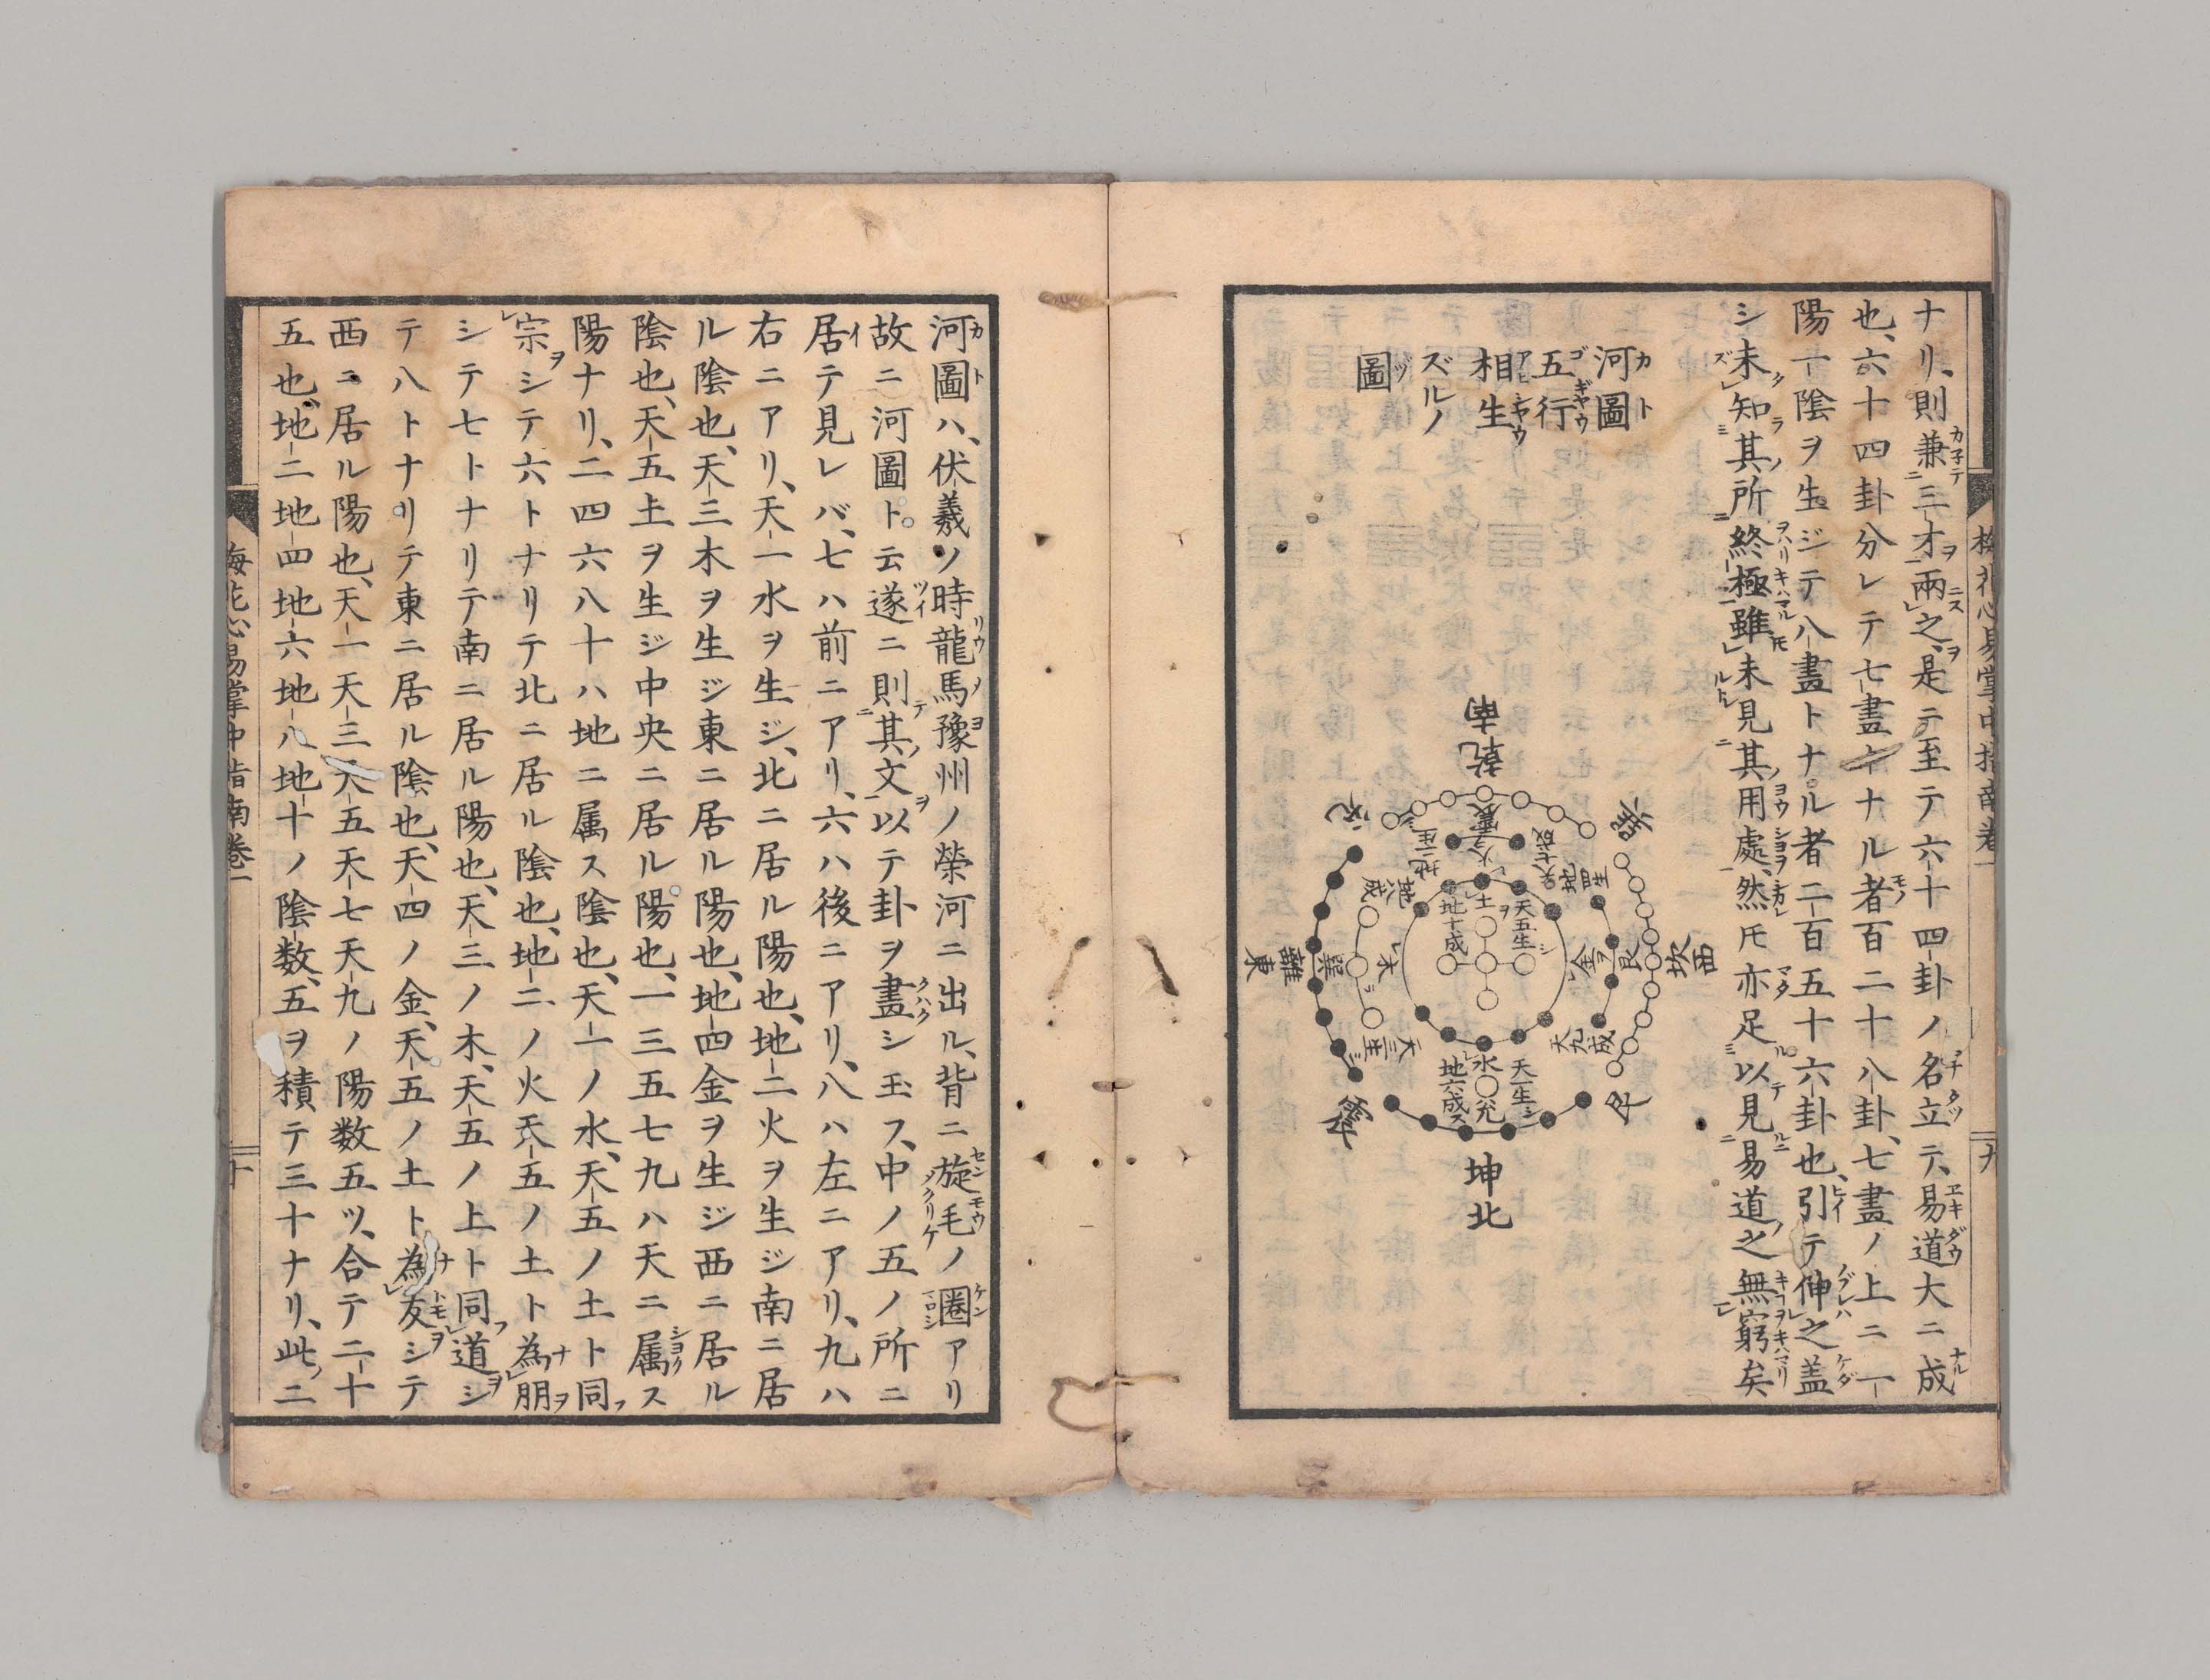 ナリ、則兼三才兩之、是ニテ至テ六十四卦ノ名立テ、易道大ニ成
也、六十四卦分レテ七畫トナル者百二十八卦、七畫ノ上ニ一
陽一陰ヲ生ジテ八畫トナル者二百五十六卦也、引テ伸之蓋
シ未知其所終極雖未見其用處、然圧亦足以見易道之無窮矣
河圖
五行
相生
ズルノ
圖
南
乾
兌
巽
坎西
艮
離東
震
坤
北
火
土
金
木
水
天五生
地十成
天七成
地二生
地四生
天九成
天三生
地八成
天一生
地六成
梅花心易掌中指南卷一
九
河圖ハ、伏羲ノ時龍馬豫州ノ榮河ニ出ル、背ニ旋毛ノ圈アリ
故ニ河圖ト云遂ニ則其文以テ卦ヲ畫シ玉フ、中ノ五ノ所ニ
居テ見レバ、七ハ前ニアリ、六ハ後ニアリ、八ハ左ニアリ、九ハ
右ニアリ、天一水ヲ生ジ、北ニ居ル陽也、地二火ヲ生ジ南ニ居
ル陰也、天三木ヲ生ジ東ニ居ル陽也、地四金ヲ生ジ西ニ居ル
陰也、天五土ヲ生ジ中央ニ居ル陽也、一三五七九ハ天ニ属ス
陽ナリ、二四六八十ハ地ニ属ス陰也、天一ノ水、天五ノ土ト同
宗シテ六トナリテ北ニ居ル陰也、地二ノ火天五ノ土ト為朋
シテ七トナリテ南ニ居ル陽也、天三ノ木、天五ノ上ト同道シ
テ八トナリテ東ニ居ル陰也、天四ノ金、天五ノ土ト為友シテ
西ニ居ル陽也、天一天三天五天七天九ノ陽数五ツ、合テ二十
五也、地二地四地六地八地十ノ陰数、五ヲ積テ三十ナリ、此二
梅花心易掌中指南卷一
十